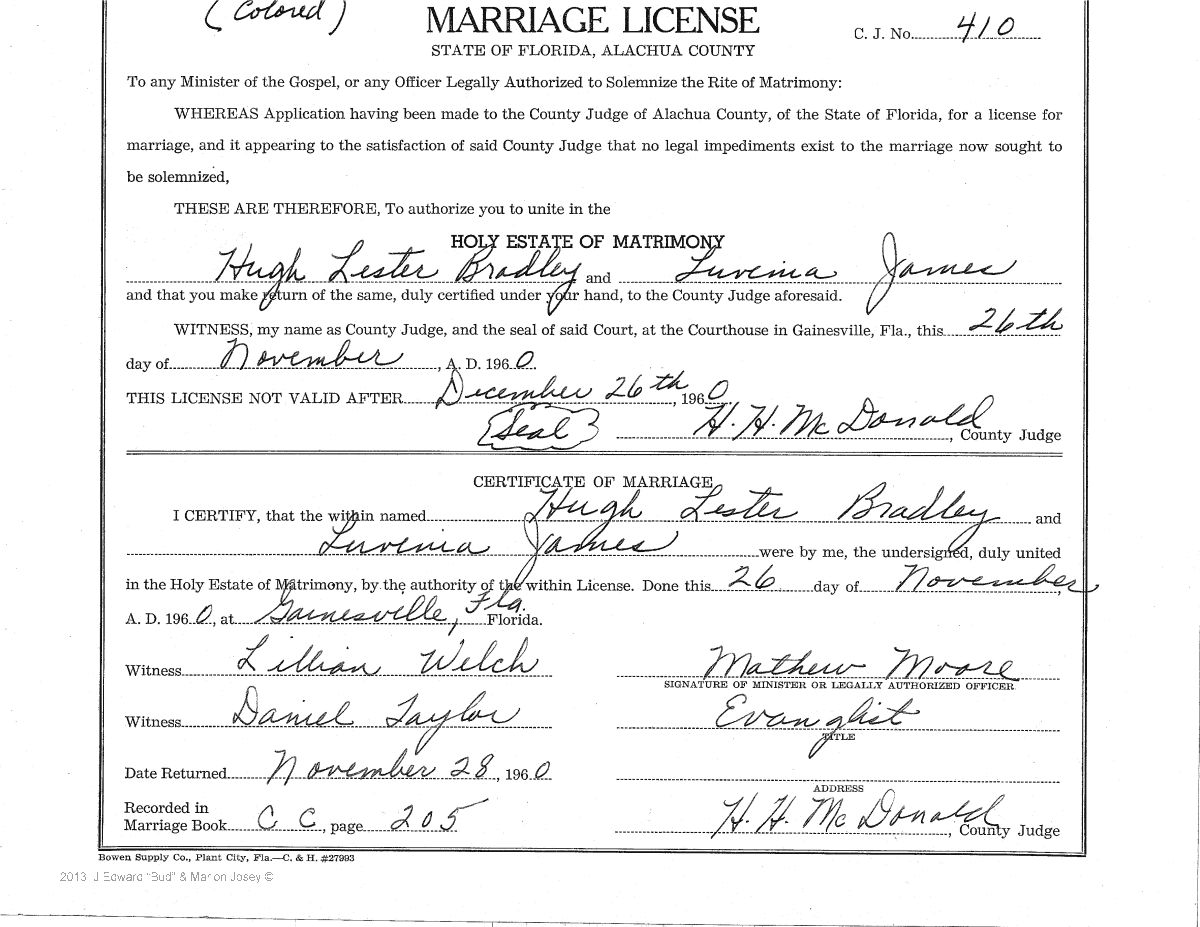 (Colored)
MARRIAGE LICENSE
C. J. No. 410
STATE OF FLORIDA, ALACHUA COUNTY
To any Minister of the Gospel, or any Officer Legally Authorized to Solemnize the Rite of Matrimony:
WHEREAS Application having been made to the County Judge of Alachua County, of the State of Florida, for a license for
marriage, and it appearing to the satisfaction of said County Judge that no legal impediments exist to the marriage now sought to
be solemnized,
THESE ARE THEREFORE, To authorize you to unite in the
HOLY ESTATE OF MATRIMONY
Hugh Lester Bradley and Luvenia James
and that you make return of the same, duly certified under your hand, to the County Judge aforesaid.
WITNESS, my name as County Judge, and the seal of said Court, at the Courthouse in Gainesville, Fla., this 26th
day of November, A. D. 1960.
THIS LICENSE NOT VALID AFTER December 26th, 1960
(Seal) H. H. McDonald, County Judge
CERTIFICATE OF MARRIAGE
I CERTIFY, that the within named Hugh Lester Bradley and
Luvenia James were by me, the undersigned, duly united
in the Holy Estate of Matrimony, by the authority of the within License. Done this 26 day of November,
A. D. 1960, at Gainesville, Fla. Florida.
Witness Lillian Welch Mathew Moore
SIGNATURE OF MINISTER OR LEGALLY AUTHORIZED OFFICER
Witness Daniel Taylor Evanglist
TITLE
Date Returned November 28, 1960
ADDRESS
Recorded in
Marriage Book C C, page 205 H. H. McDonald, County Judge
Bowen Supply Co., Plant City, Fla.—C. & H. #27993
2013 J Edward "Bud" & Marion Josey ©